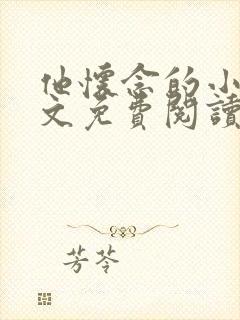 他懷念的小
文免費閱讀
芳苓